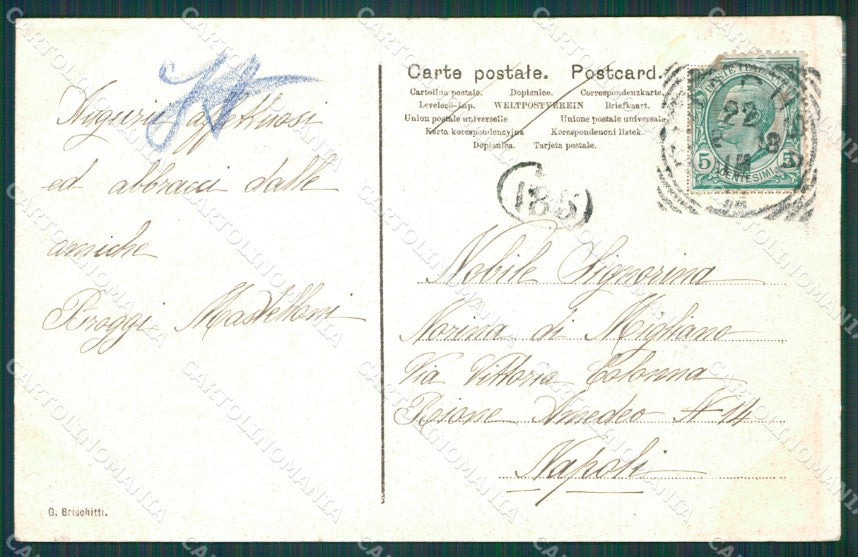 Auguri affettuosi
ed abbracci dalle
amiche
Broggi Mastelloni
G. Brischitti.
Carte postale. Postcard.
Cartolina postale. Dopisnice. Correspondenzkarte.
Levelező-lap. WELTPOSTVEREIN Briefkaart.
Union postale universelle Unione postale universale
Karta korespondencyjna Korespondencni listek.
Dopisnica. Tarjeta postale.
185
22
5 5
CENTESIMI
Nobile Signorina
Norina di Migliano
Via Vittoria Colonna
Rione Amedeo N 14
Napoli
CARTOLINOMANIA